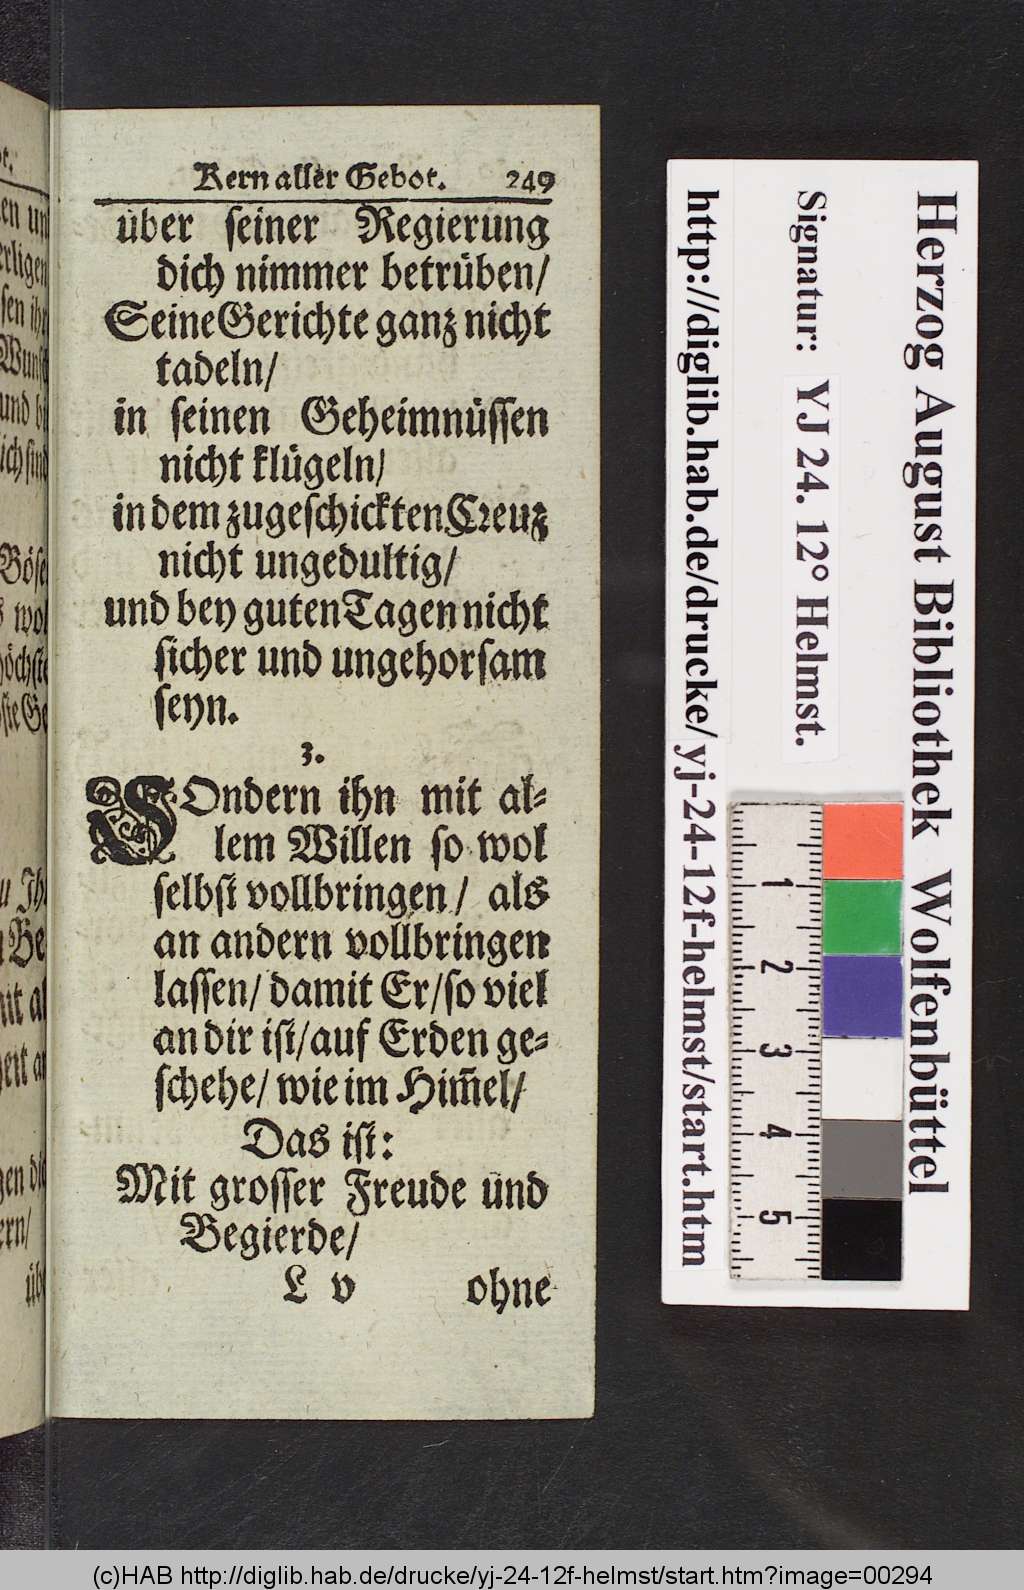 Kern aller Gebot. 249
über seiner Regierung
dich nimmer betrüben/
Seine Gerichte ganz nicht
tadeln/
in seinen Geheimnüssen
nicht klügeln/
in dem zugeschickten Creuz
nicht ungedultig/
und bey guten Tagen nicht
sicher und ungehorsam
seyn.
3.
SOndern ihn mit al-
lem Willen so wol
selbst vollbringen/ als
an andern vollbringen
lassen/ damit Er/ so viel
an dir ist/ auf Erden ge-
schehe/ wie im Him̃el/
Das ist:
Mit grosser Freude und
Begierde/
L v ohne
Herzog August Bibliothek Wolfenbüttel
Signatur: YJ 24. 12° Helmst.
http://diglib.hab.de/drucke/yj-24-12f-helmst/start.htm
1
2
3
4
5
(c)HAB http://diglib.hab.de/drucke/yj-24-12f-helmst/start.htm?image=00294